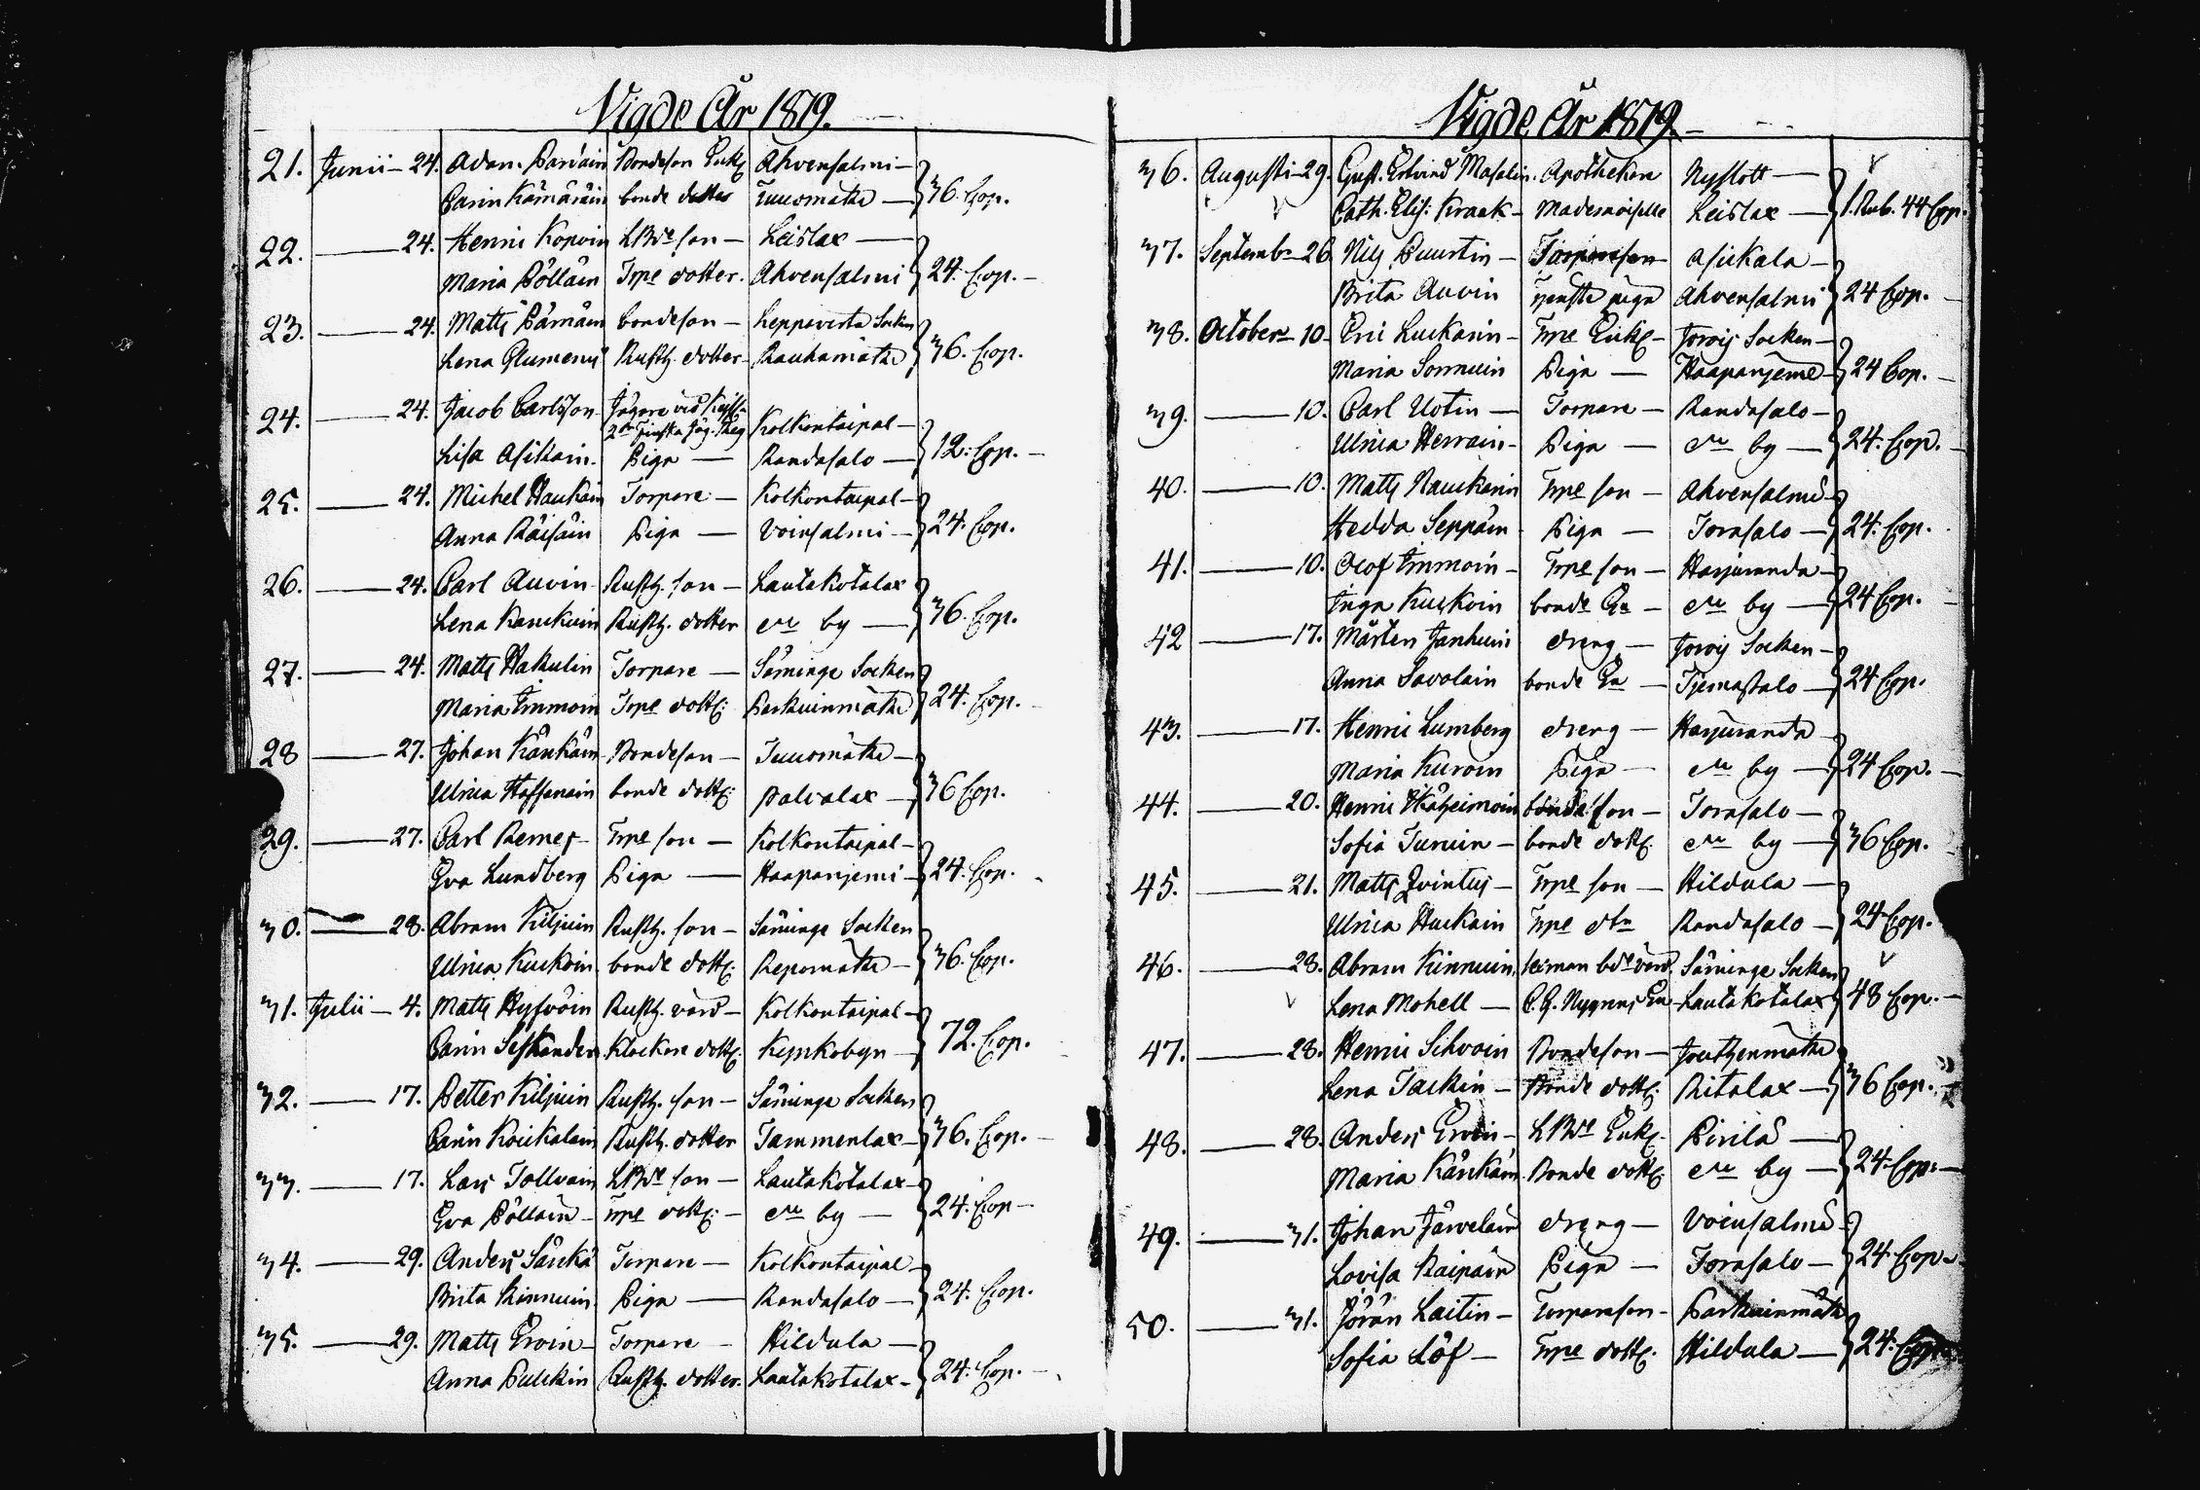 Vigde År 1819.
21. Junii – 24. Adam Parvain Bondeson Enkl. Ahvensalmi –
Carin Kämäräin bonde dotter Tuusmäke – 36. Cop.
22. — 24. Henric Kopoin LBde son – Leislax —
Maria Pöllâin Trpe dotter. Ahvensalmi 24. Cop. –
23. — 24. Matts Pärnäin bondeson – Leppävirta Socken
Lena Glumerus Rusth. dotter – Rauhamäke 36. Cop.
24. — 24. Jacob Carlsson Jägare vid Kejs.
2dra Finska Jäg. Reg Kolkontaipal –
Lisa Asikain. Piga — Randasalo – 12. Cop. –
25. — 24. Michel Haukain Torpare – Kolkontaipal –
Anna Räisäin Piga — Voinsalmi – 24. Cop.
26. — 24. Carl Auvin Rusth. son – Lautakotalax
Lena Kauckuin Rusth. dotter dtt by — 36. Cop.
27. — 24. Matts Hakulin Torpare — Säminge Socken
Maria Immoin Trpe dottr: Parkuinmäke 24. Cop.
28 — 27. Johan Känkäin Bondeson – Tuusmäke –
Ulrica Hoffrenin bonde dottr: Palvalax – 36 Cop.
29. — 27. Carl Remes – Trpe son – Kolkontaipal –
Eva Lundberg Piga — Haapanjemi – 24. Cop.
30. — 28. Abram Kiljuin Rusth. son – Säminge Socken
Ulrica Kuckoin bonde dottr. Repomäke – 36. Cop.
31. Julii – 4. Matts Hyfvöin Rusth. värd – Kolkontaipal –
Carin Leskander Klockare dottr. Kyrkobyn – 72. Cop.
32. — 17. Petter Kiljuin Rusth. son – Säminge Socken
Carin Koukalain Rusth. dotter Tammenlax – 36. Cop. –
33. — 17. Lars Tollvain LBde son – Lautakotalax –
Eva Pöllâin – Trpe dottr. – dtt by — 24. Cop –
34. — 29. Anders Särckä Torpare – Kolkontaipal –
Brita Kinnuin. Piga — Randasalo – 24. Cop.
35. — 29. Matts Ervin – Torpare – Hildula —
Anna Pulckin Rusth. dotter. Lautakotalax – 24. Cop. –
Vigde År 1819. –
36. Augusti – 29. Gust. Edvard Masalin. Apothekare Nyslott —
Cath. Elis: Kraak – Mademoiselle Leislax — 1. Rub. 44 Cop.
37. Septembr – 26 Nils Puurtin – Torpareson Asikala –
Brita Auvin Tjenste piga Ahvensalmi 24 Cop. –
38. October – 10 – Eric Luckarin – Trpe Enkl. – Jorois Socken –
Maria Sormuin Piga — Haapanjeme – 24 Cop. –
39. — 10. Carl Uotin — Torpare – Randasalo –
Ulrica Herrain – Piga — dtt by — 24. Cop. –
40. — 10. Matts Nauckarin Trpe son – Ahvensalmi –
Hedda Seppäin Piga — Torasalo – 24. Cop.
41. — 10. Olof Immoin – Trpe son – Harjuranda –
Inga Kuckoin bonde Ea – dtt by — 24 Cop. –
42 — 17. Mårten Janhuin dreng — Jorois Socken –
Anna Savolain bonde Ea – Tjemassalo – 24 Cop.
43. — 17. Henric Lumberg dreng — Harjuranda
Maria Kuroin Piga — dtt by — 24 Cop. –
44. — 20. Henric bonde son – Torasalo —
Sofia Turuin – bonde dottr. dtt by — 36 Cop.
45. — 21. Matts Qvintus – Trpe son – Hildula —
Ulrica Huckain Trpe dtr Randasalo – 24 Cop.
46. — 28. Abram Kinnuin, Säminge Socken
Lena Mohell — Lautakotalax 48 Cop. –
47. — 28. Henric Silvoin Bondeson – Joutzenmäke
Lena Tackin – Bonde dottr. Ritalax — 36 Cop. –
48. — 28. Anders Ervin – LBde Enkl. Pirilä —
Maria Känkäin Bonde dottr. dtt by — 24. Cop: –
49. — 31. Johan Järveläin dreng — Voinsalmi –
Lovisa Raipain Piga — Torasalo – 24 Cop –
50. — 31. Jöran Laitin – Torpareson – Parkuinmäke
Sofia Löf – Trpe dottr. Hildula — 24. Cop.